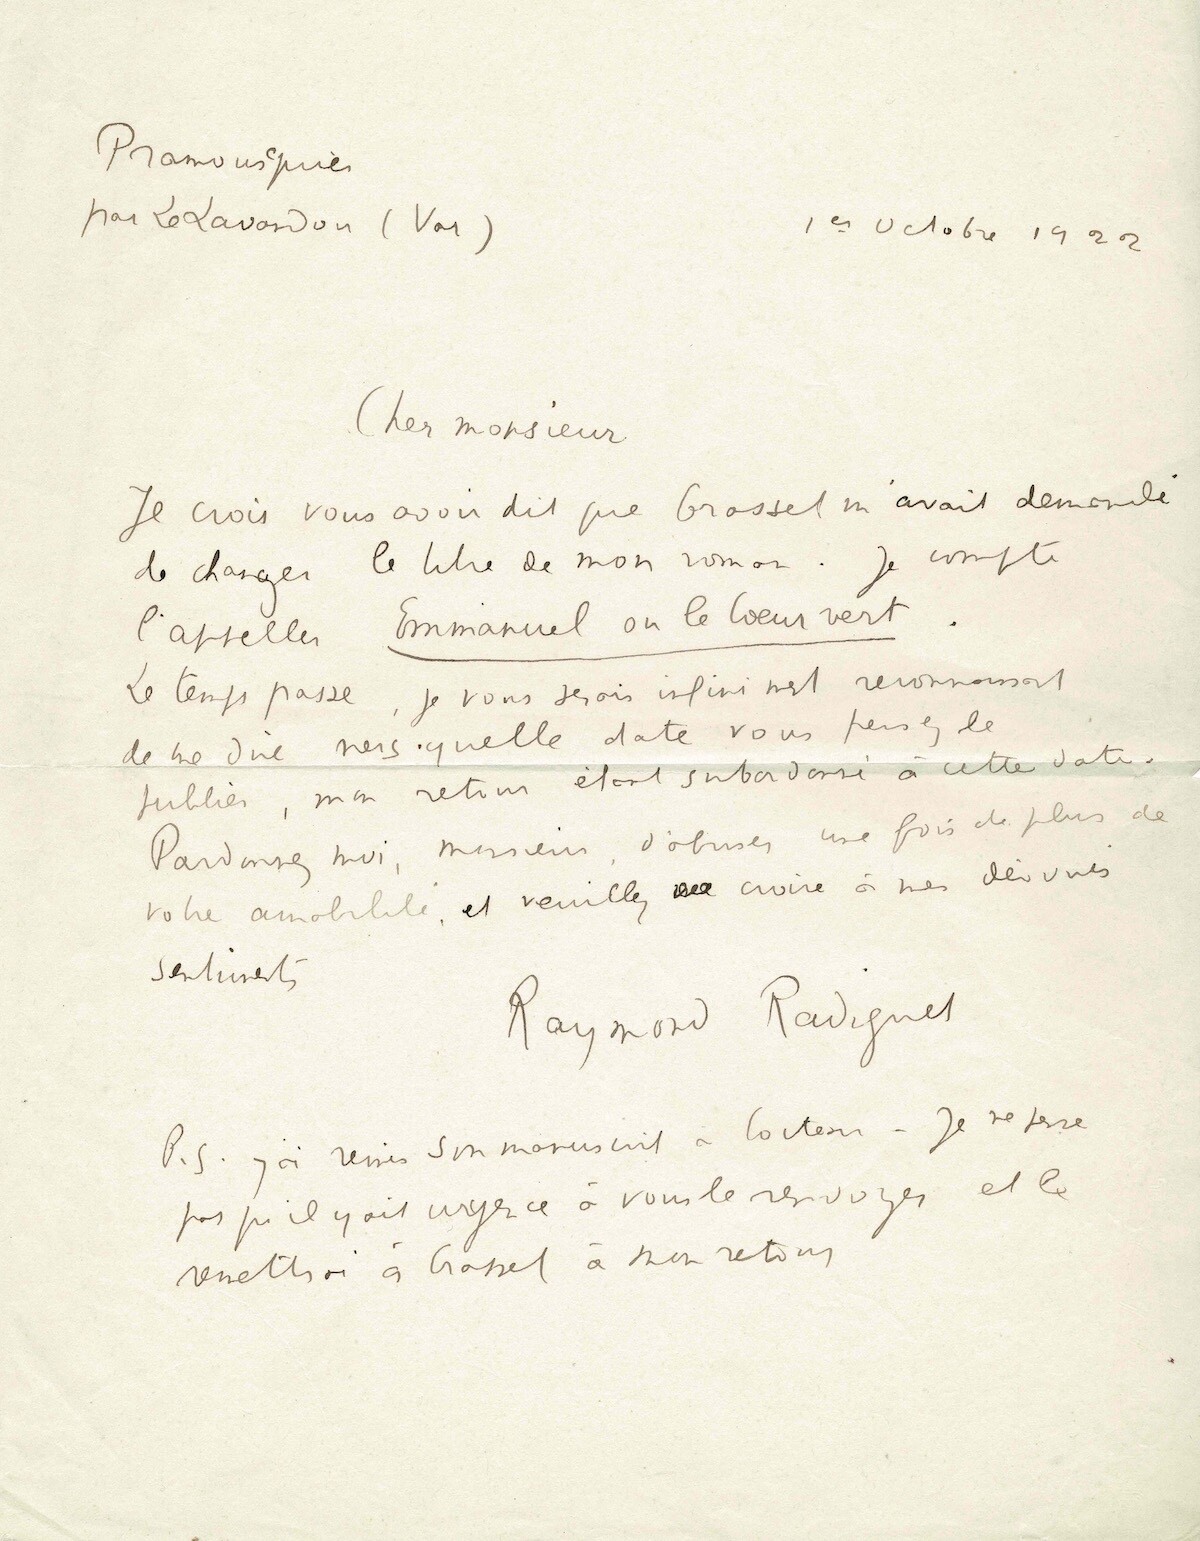 Pramousquier
par Le Lavandou (Var)
1er Octobre 1922
Cher monsieur
Je crois vous avoir dit que Grasset m'avait demandé
de changer le titre de mon roman. Je compte
l'appeller Emmanuel ou le Cœur vert.
Le temps passe, je vous serais infiniment reconnaissant
de me dire vers quelle date vous pensez le
publier, mon retour étant subordonné à cette date.
Pardonnez moi, monsieur, d'abuser une fois de plus de
votre amabilité, et veuillez croire à mes dévoués
sentiments
Raymond Radiguet
P.S. j'ai remis son manuscrit à Cocteau - Je ne pense
pas qu'il y ait urgence à vous le renvoyer et le
remettrai à Grasset à mon retour